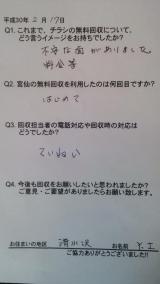 平成30年 2月 17日
Q1. これまで、チラシの無料回収について、
どう言うイメージをお持ちでしたか?
不安な面がありました。
料金等
Q2. 宮仙の無料回収を利用したのは何回目ですか?
はじめて
Q3. 回収担当者の電話対応や回収時の対応は
どうでしたか?
ていねい
Q4. 今後も回収をお願いしたいと思われましたか?
ご意見・ご要望がありましたらお願い致します。
お住まいの地区 清水沢 お名前 Y.I
ご協力ありがとうございました!!